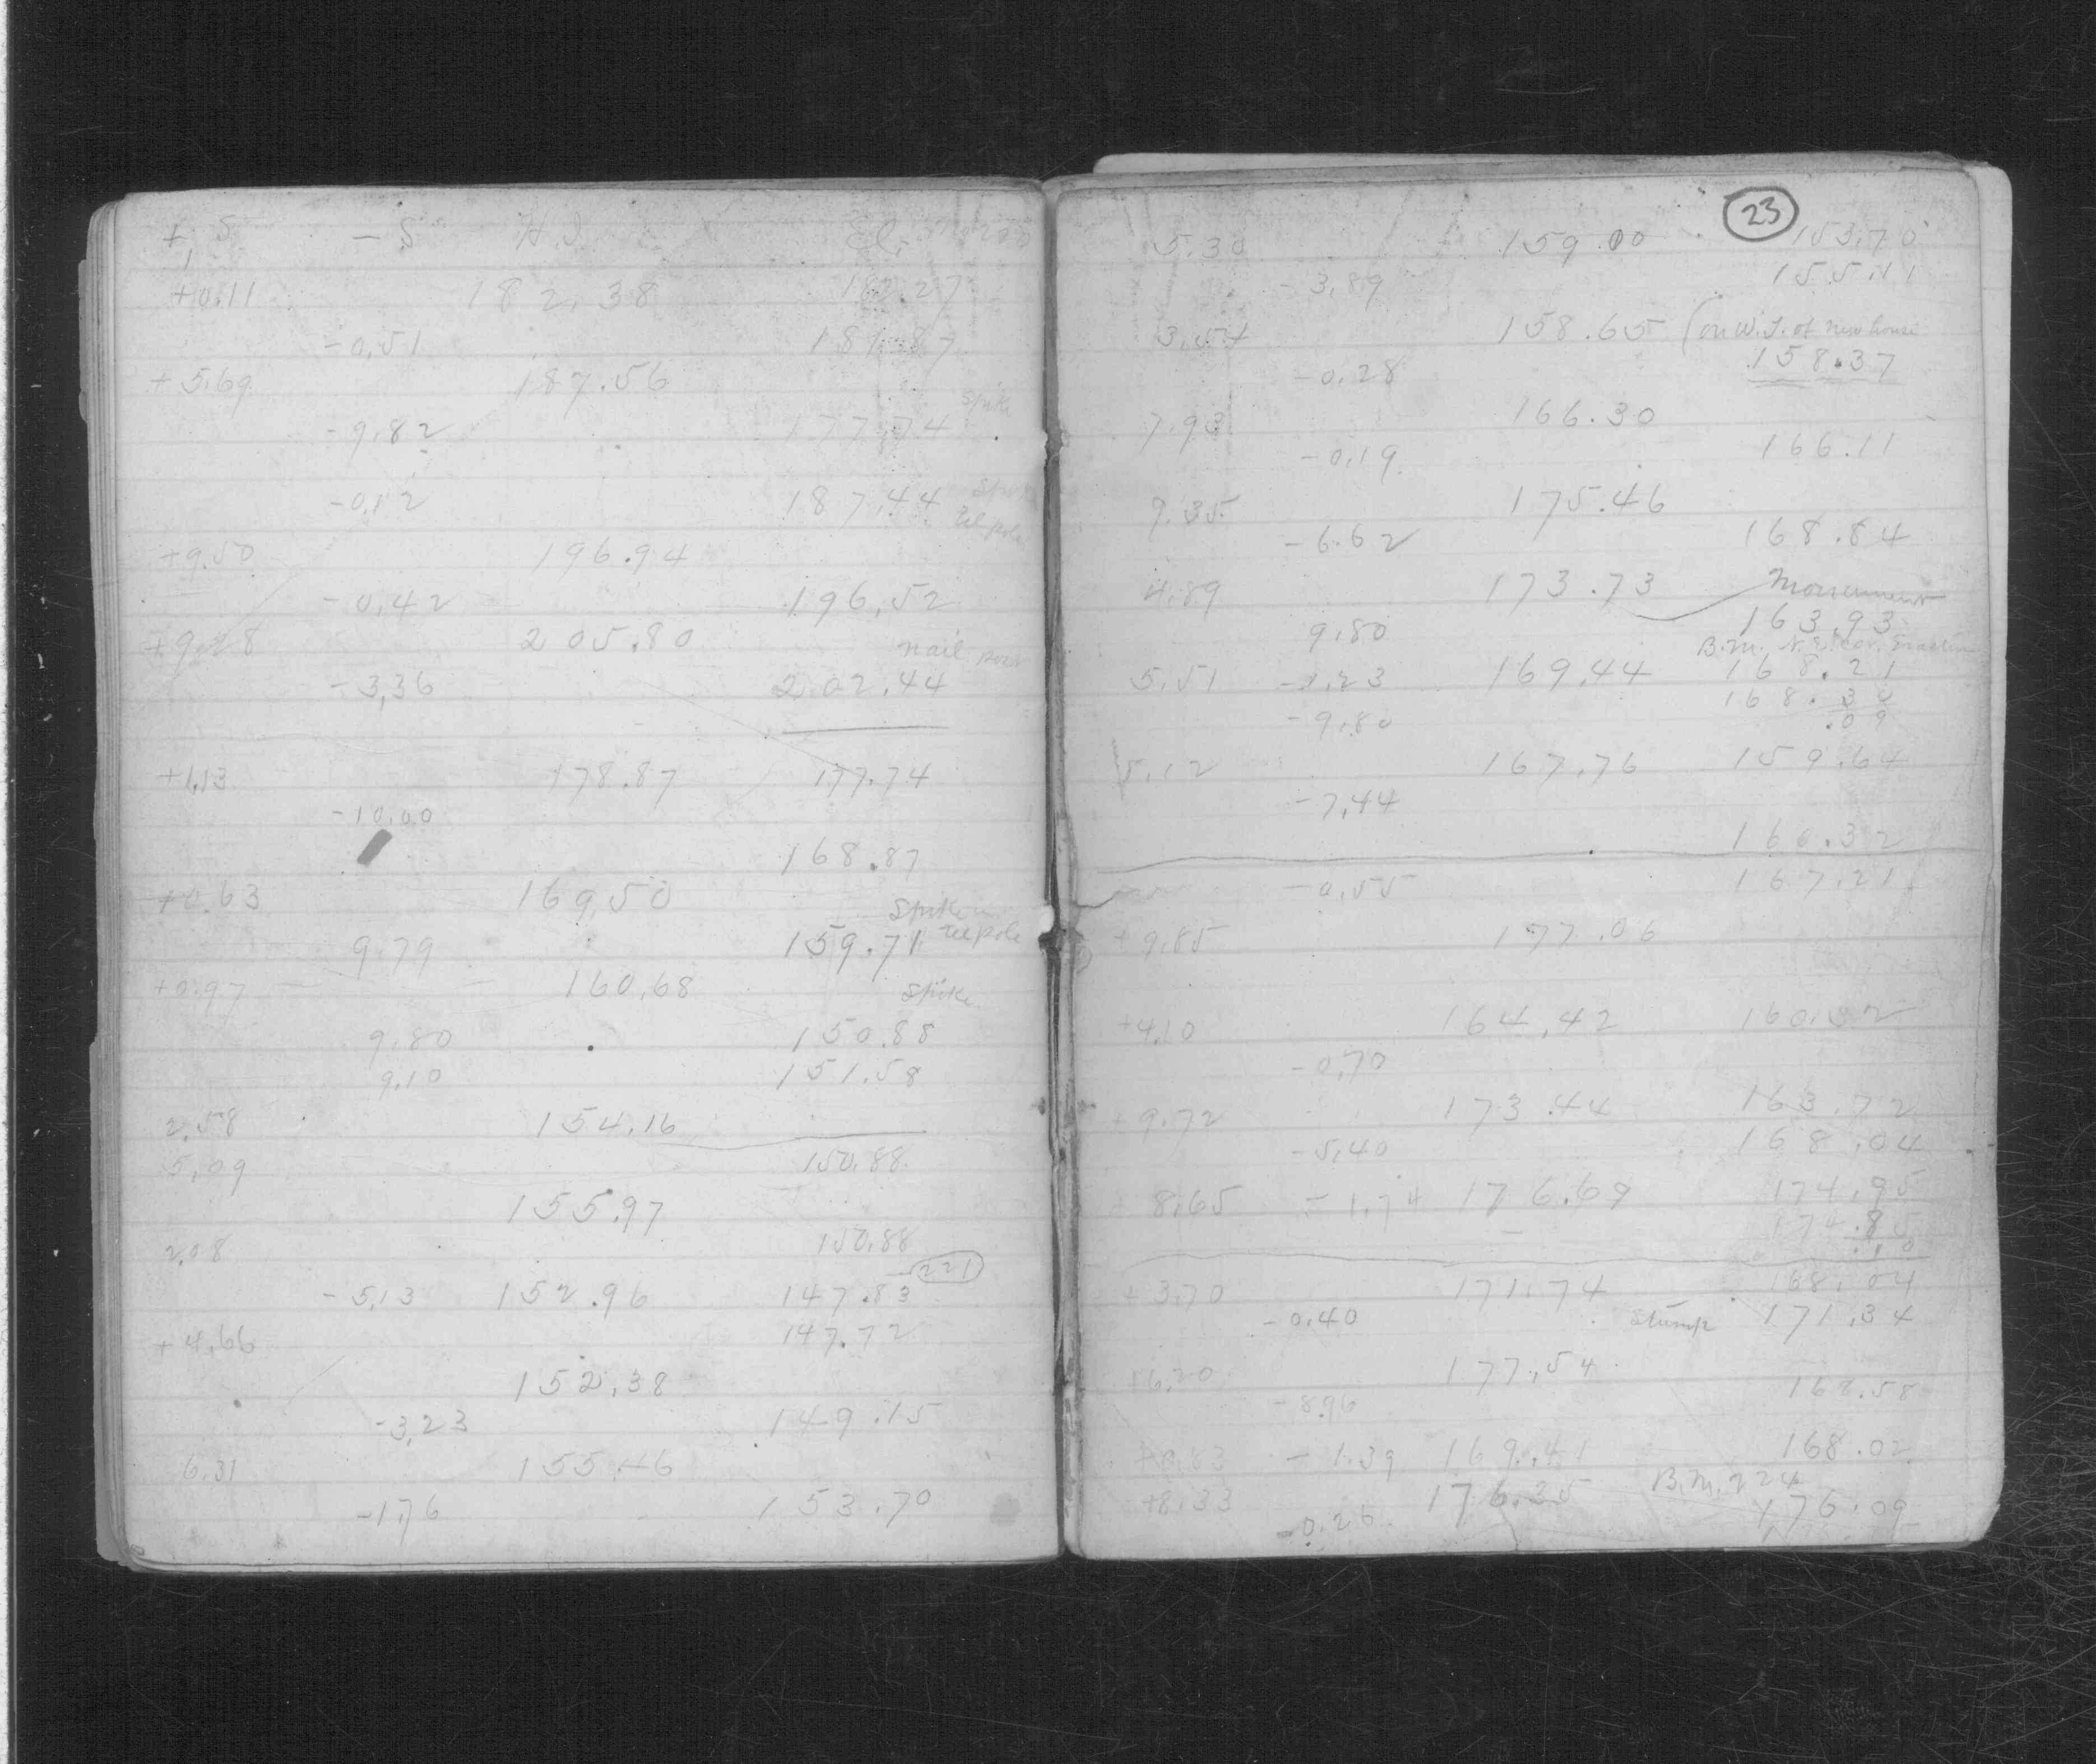 + S - S H.I. El.
+0.11 182.38 182.27
-0.51 181.87
+5.69 187.56
Spike
-9.82 177.74
-0.12 187.44 Spike
tel pole
+9.50 196.94
-0.42 196.52
+9.28 205.80 nail
-3.36 202.44
+1.13 178.87 177.74
-10.00
168.87
+0.63 169.50 Spike in
9.79 159.71 tel pole
+0.97 160.68 Spike
9.80 150.88
9.10 151.58
2.58 154.16
5.09 150.88
155.97
2.08 150.88
221
-5.13 152.96 147.83
+4.66 147.72
152.38
-3.23 149.15
6.31 155.46
-1.76 153.70
23
5.30 159.00 153.70
-3.89 155.11
3.54 158.65 (on W.S. of new house
-0.28 158.37
7.93 166.30
-0.19 166.11
9.35 175.46
-6.62 168.84
4.89 173.73 Monument
9.80 163.93
B.M. N.E. Cor.
5.51 -1.23 169.44 168.21
168.30
-9.80 .09
5.12 167.76 159.64
-7.44
160.32
-0.55 167.21
+9.85 177.06
+4.10 164.42 160.32
-0.70
+9.72 173.44 163.72
-5.40 168.04
+8.65 -1.74 176.69 174.95
174.85
.10
+3.70 171.74 168.04
-0.40 Stump 171.34
+6.20 177.54
-8.96 168.58
+0.83 -1.39 169.41 168.02
+8.33 176.35 B.M. 224
-0.26 176.09